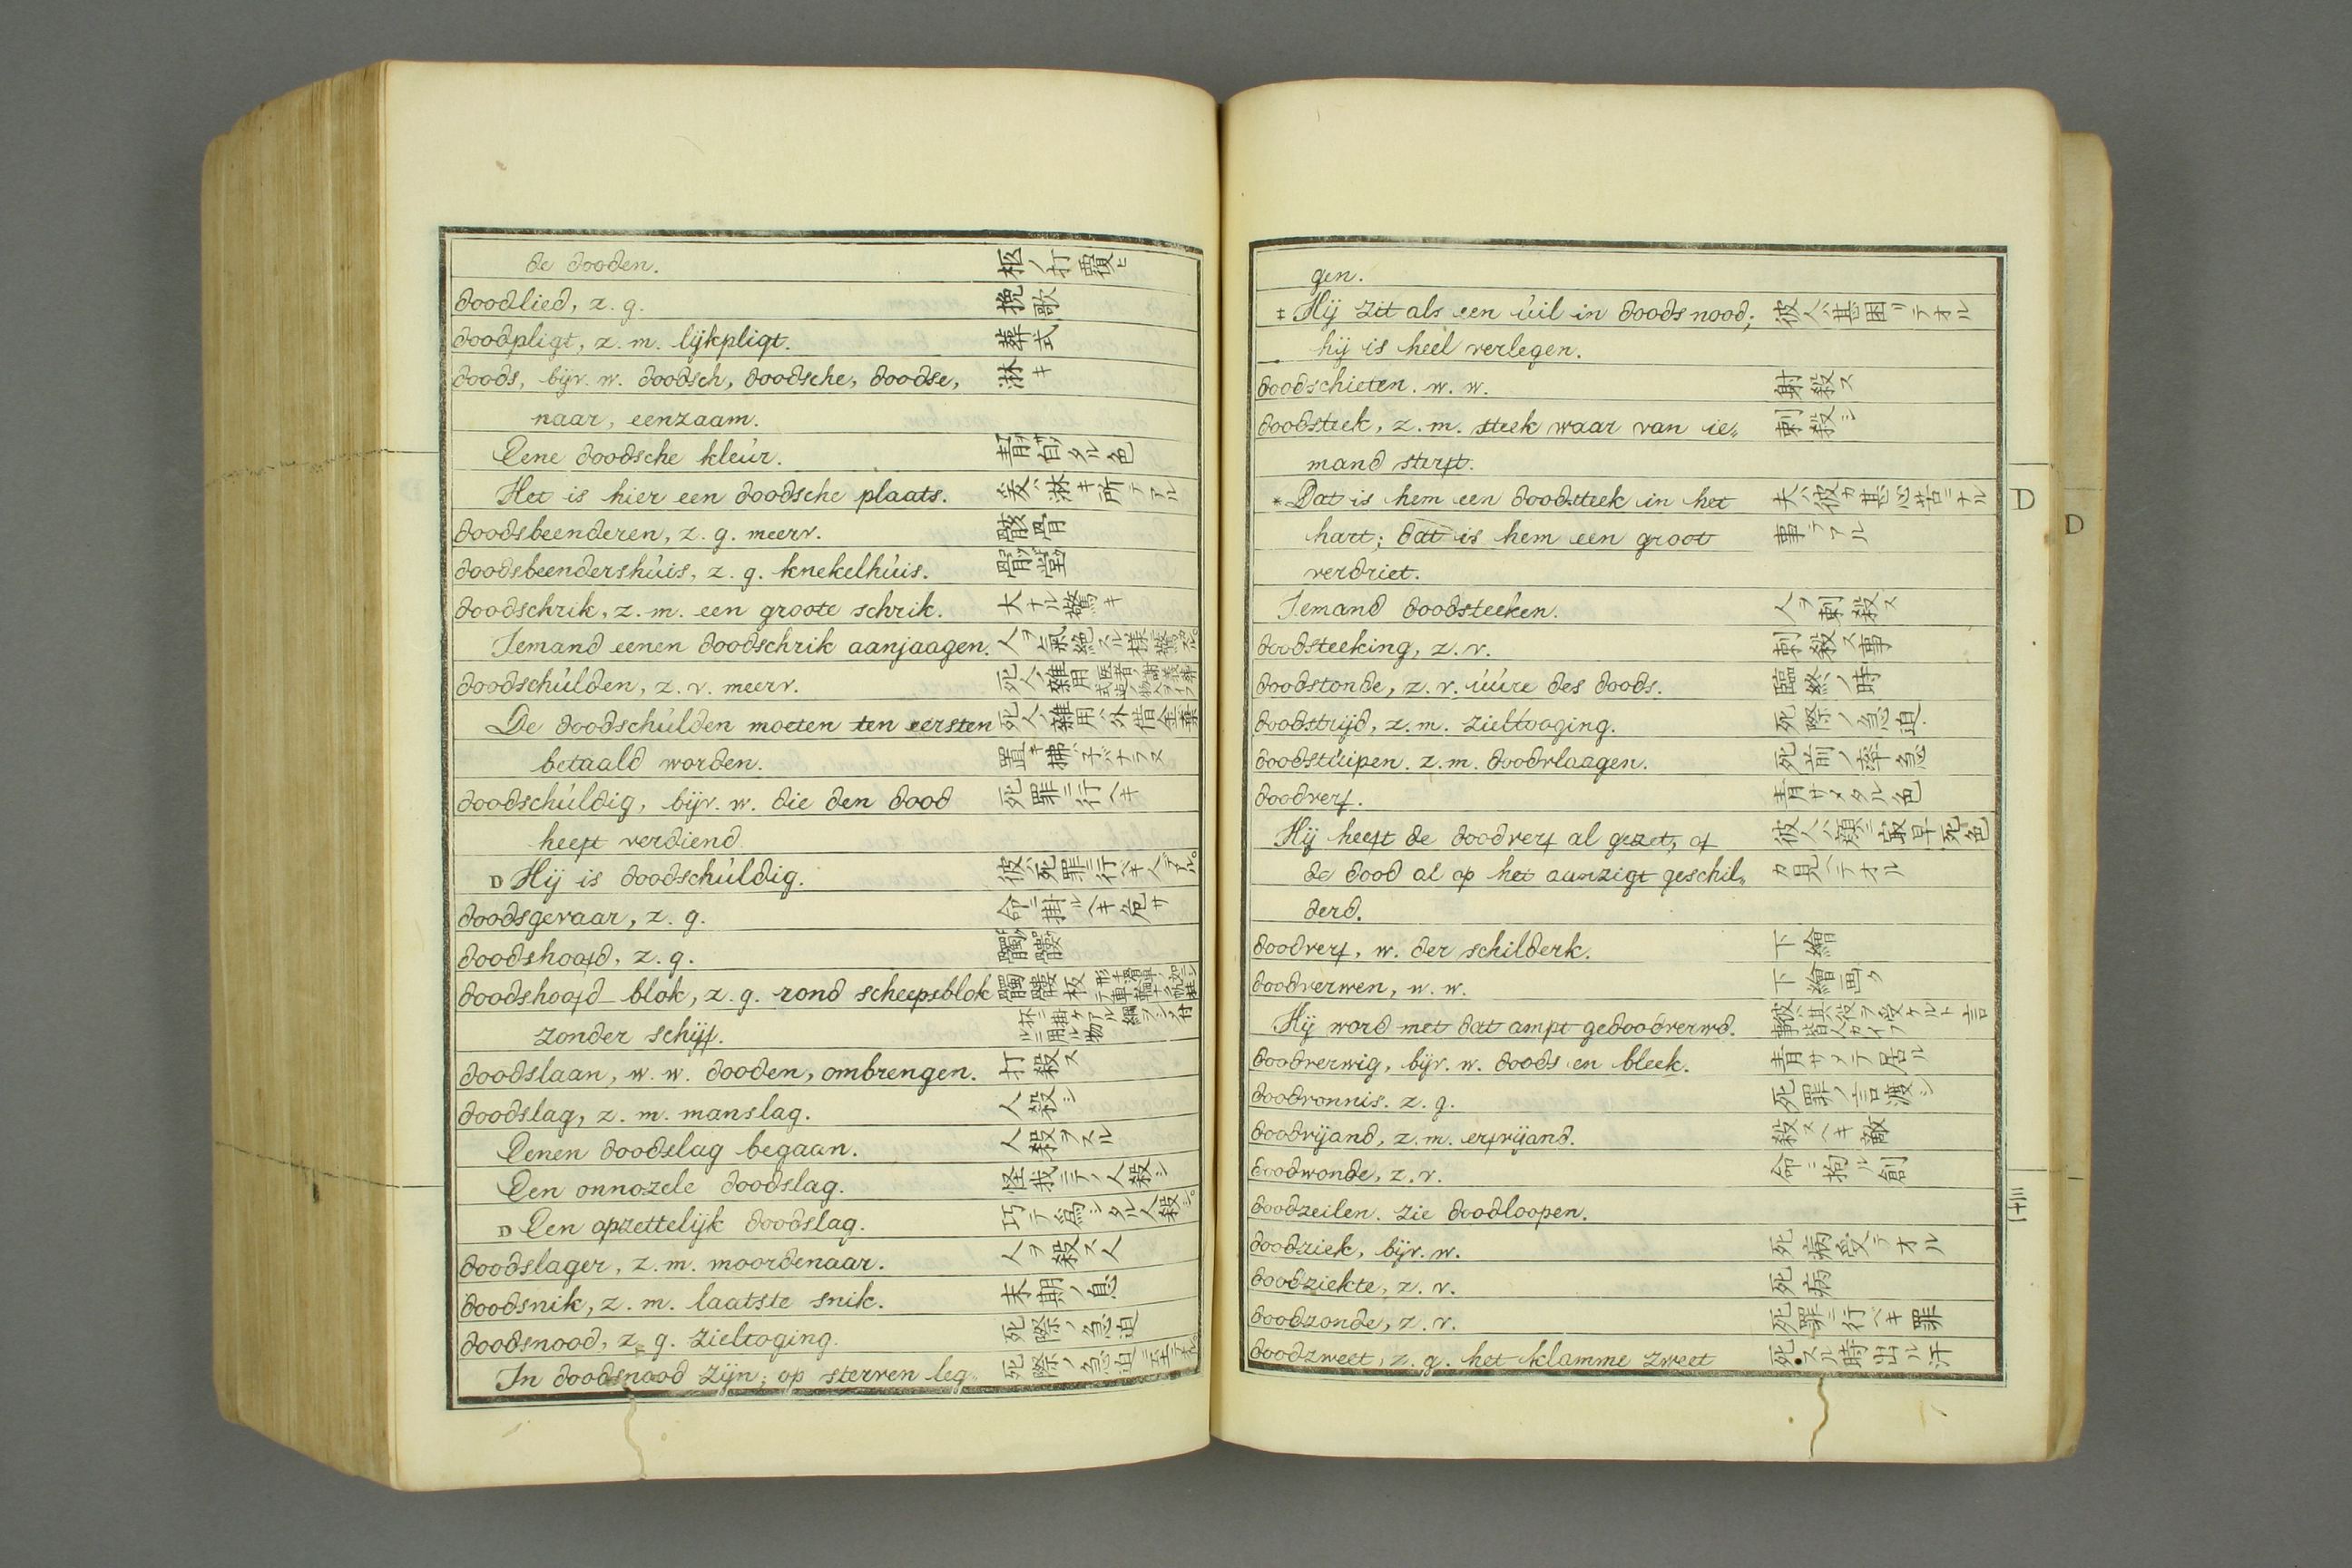 de dooden. 柩ノ打覆ヒ
doodlied, z. g. 挽歌
doodpligt, z. m. lijkpligt. 葬式
doods, bijv. w. doodsch, doodsche, doodse, 淋キ
naar, eenzaam.
Eene doodsche kleúr. 青色
Het is hier een doodsche plaats. 爰ハ淋キ所テアル
doodsbeenderen, z. g. meerv. 骸骨
doodsbeendershúis, z. g. knekelhúis.
doodschrik, z. m. een groote schrik. 大ナル驚キ
Iemand eenen doodschrik aanjaagen. 人ヲ氣絶スル様
doodschúlden, z. v. meerv. 死人ノ雜用
De doodschúlden moeten ten eersten 死人ノ雜用ハ外借金
betaald worden. 置キ拂子バナラヌ
doodschúldig, bijv. w. die den dood 死罪ニ行ヘキ
heeft verdiend.
D Hij is doodschúldig. 彼ハ死罪ニ行ヘキ人テアル。
doodsgevaar, z. g. 命ニ掛ルヘキ危サ
doodshoofd, z. g. 髑髏
doodshoofd blok, z. g. rond scheepsblok 髑髏板
zonder schijf.
doodslaan, w. w. dooden, ombrengen. 打殺ス
doodslag, z. m. manslag. 人殺シ
Eenen doodslag begaan. 人殺ヲスル
Een onnozele doodslag. 怪我ニテノ人殺シ
D Een opzettelijk doodslag. 巧テ爲シタル人殺シ。
doodslager, z. m. moordenaar. 人ヲ殺ス人
doodsnik, z. m. laatste snik. 末期ノ息
doodsnood, z. g. zieltoging. 死際ノ急迫
In doodsnood zijn; op sterven leg„ 死際ノ急迫
gen.
‡ Hij zit als een úil in doods nood; 彼人ハ甚困リテオル
hij is heel verlegen.
doodschieten. w. w. 射殺ス
doodsteek, z. m. steek waar van ie„ 刺殺シ
mand sterft.
* Dat is hem een doodsteek in het 夫ハ彼カ甚心苦ニナル
hart; dat is hem een groot 事テアル
verdriet.
Iemand doodsteeken. 人ヲ刺殺ス
doodsteeking, z. v. 刺殺ス事
doodstonde, z. v. úúre des doods. 臨終ノ時
doodstrijd, z. m. zieltooging. 死際ノ急迫.
doodstúipen. z. m. doodvlaagen. 死前ノ卒急
doodverf. 青サメタル色
Hij heeft de doodverf al gezet, of 彼人ハ顔ニ最早死色
de dood al op het aanzigt geschil„ カ見ヘテオル
derd.
doodverf, w. der schilderk. 下繪
doodverwen, w. w. 下繪画ク
Hij word met dat ampt gedoodverwd. 彼ハ其役ヲ受ケルト言事皆人カイフ
doodverwig, bijv. w. doods en bleek. 青サメテ居ル
doodvonnis. z. g. 死罪ノ言渡シ
doodvijand, z. m. erfvijand. 殺スヘキ敵
doodwonde, z. v. 命ニ拘ル創
doodzeilen. zie doodloopen.
doodziek, bijv. w. 死病受テオル
doodziekte, z. v. 死病
doodzonde, z. v. 死罪ニ行ベキ罪
doodzweet, z. g. het klamme zweet 死スル時出ル汗
D
D